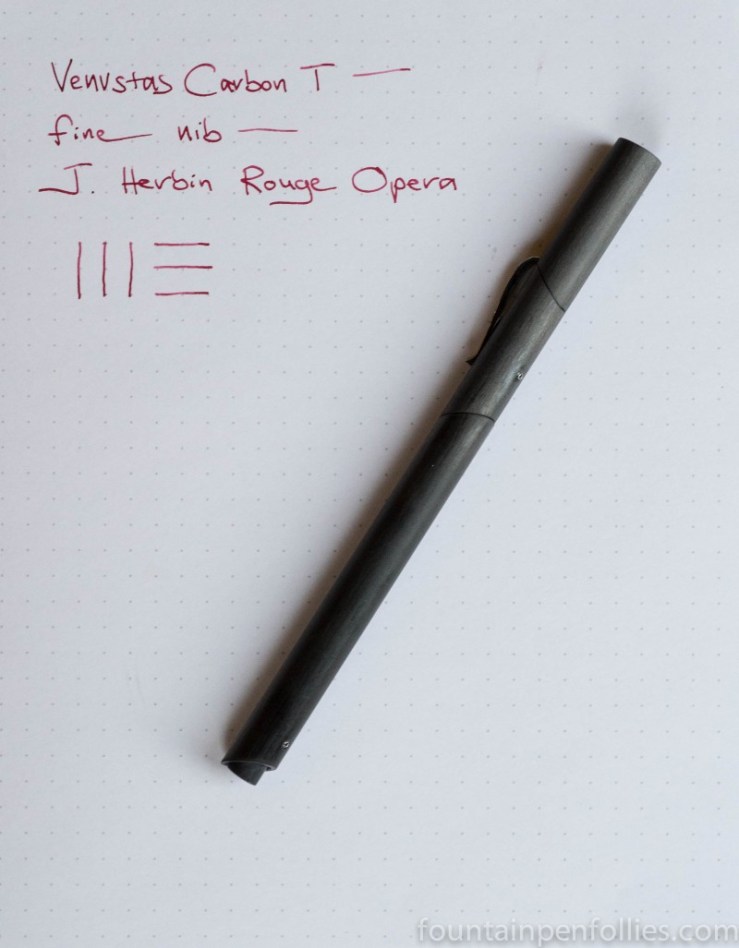 Venvstas Carbon T —
fine nib —
J. Herbin Rouge Opera
fountainpenfollies.com